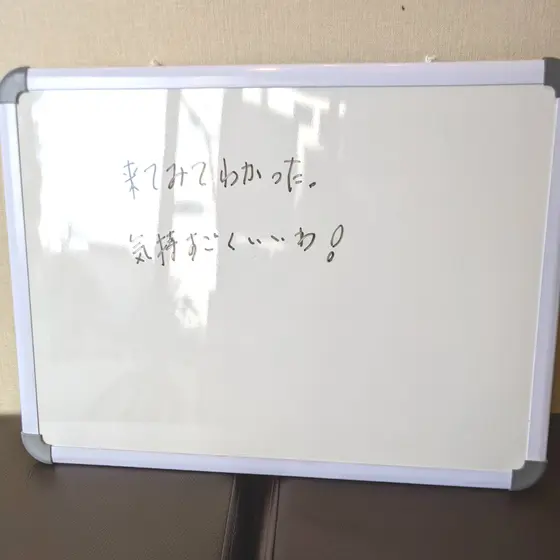 来てみてわかった。
気持すごくいいわ!